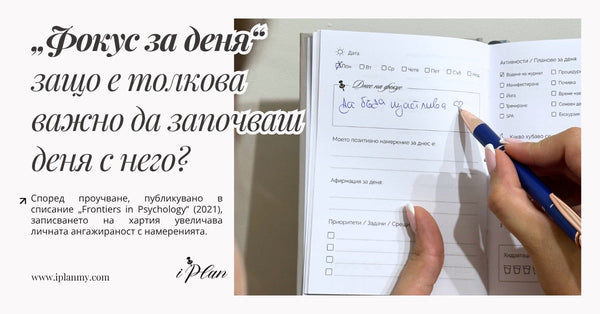 „Фокус за деня“
защо е толкова
важно да започваш
деня с него?
Според проучване, публикувано в
списание „Frontiers in Psychology“ (2021),
записването на хартия увеличава
личната ангажираност с намеренията.
www.iplanmy.com
iPlan
Дата:
Пон Вт Ср Четв Пет Съб Нед
Днес на фокус:
Да бъда щастлива
Моето позитивно намерение за днес е:
Афирмация за деня:
Приоритети / Задачи / Срещи
Активности / Планове за деня
Водене на журнал
Манифестиране
Йога
Трениране
SPA
Какво хубаво